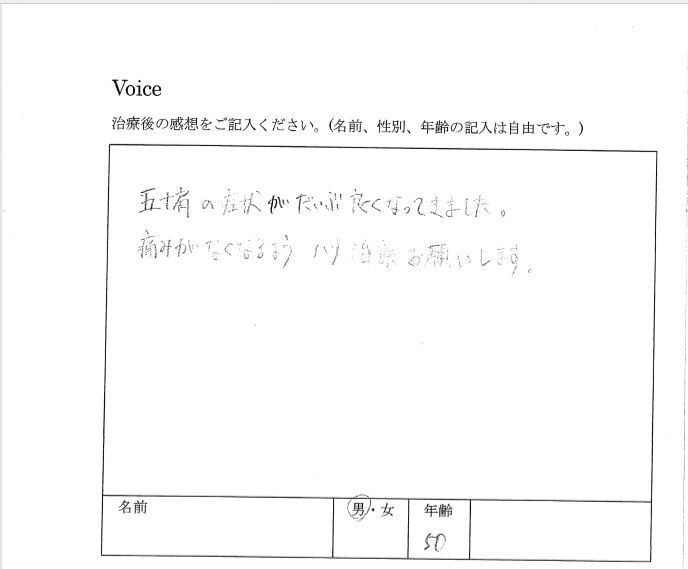 Voice
治療後の感想をご記入ください。(名前、性別、年齢の記入は自由です。)
五十肩の症状がだいぶ良くなってきました。
痛みがなくなるよう ハリ治療お願いします。
名前
男・女
年齢
50